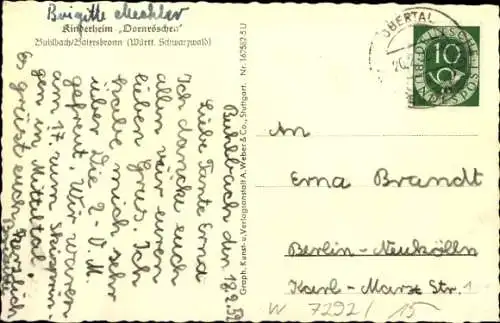 Brigitte Mechler
Kinderheim „Dornröschen"
Buhlbach/Baiersbronn (Württ. Schwarzwald)
Buhlbach den 18.2.52
Liebe Tante Erna
Ich dancke euch
allen vür euren
Grus. Ich
habe mich sehr
über Die 2-D.M.
gefreut. Wir waren
am 17. zum Skisprin-
gen in Mitteltal.
Es grüst euch herzlich
Brigitte
Graph. Kunst- u. Verlagsanstalt A. Weber & Co., Stuttgart. Nr. 167582 5 U
OBERTAL
DEUTSCHE
BUNDESPOST
10
An
Erna Brandt
Berlin-Neukölln
Karl-Marx Str. 1
W 7292/15